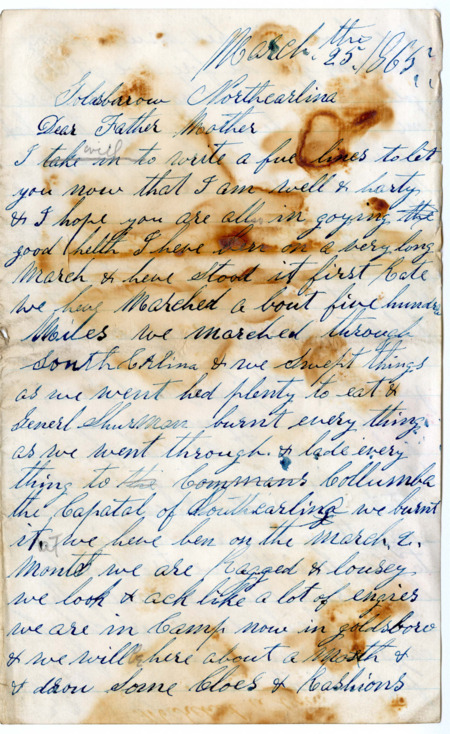 March. the 25. 1865
Goldsburrow Northcarlina
Dear Father Mother
I take in will to write a few lines to let
you now that I am well & harty
& I hope you are all in goying the
good helth I heve ben on a very long
March & heve stood it first Rate
we heve Marched a bout five hundre
Moiles we marched through
South Carlina & we swept things
as we went hed plenty to eat &
Generl Shurman burnt every thing
as we went through & lade every
thing to the Commans Collumba
the Capatal of Southcarling we burnt
it we heve ben on the march 2.
Month we are Ragged & lousey
we look & ack like a lot of engies
we are in Camp now in goldsboro
& we will here about a Month &
& drow some Cloes & Rashions